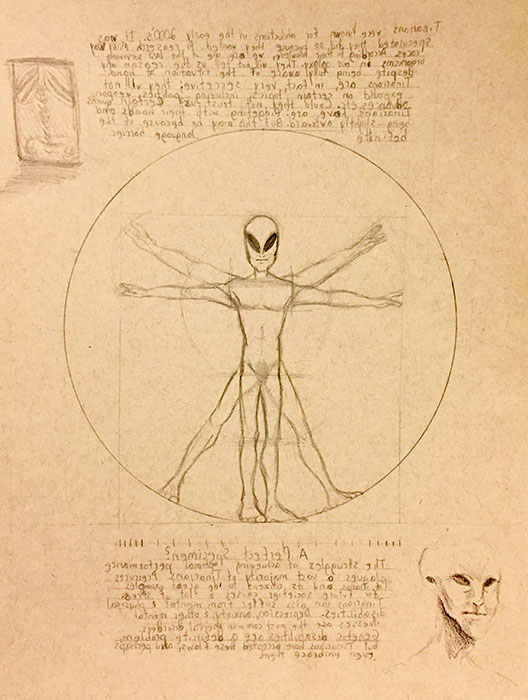 Tinarians were known for abductions in the early 3000s. It was
speculated they did so because they wanted to research Milky Way
races. According to them however, we are one of the last surviving
organisms in our galaxy. They will not tell us the reason why
despite being fully aware of the situation at hand.
Tinarians are, in fact, very secretive; they will not
expand on certain topics, including politics, weapons,
sciences, etc. Could they not trust us? Certain quirks
Tinarians have are fidgeting with their hands and
being slightly awkward. But this may be because of the
definite language barrier
A Perfect Specimen?
The struggles of achieving optimal performance
plagues a vast majority of Tinarians. Pressures
for and its citizens to be great examples
for future societies causes a lot of stress.
Tinarians can also suffer from mental & physical
disabilities. Depression, anxiety, & other mental
illnesses are the most common mental disorder
genetic disabilities are a definite problem,
but Tinarians have accepted these flaws, and perhaps
even embrace them